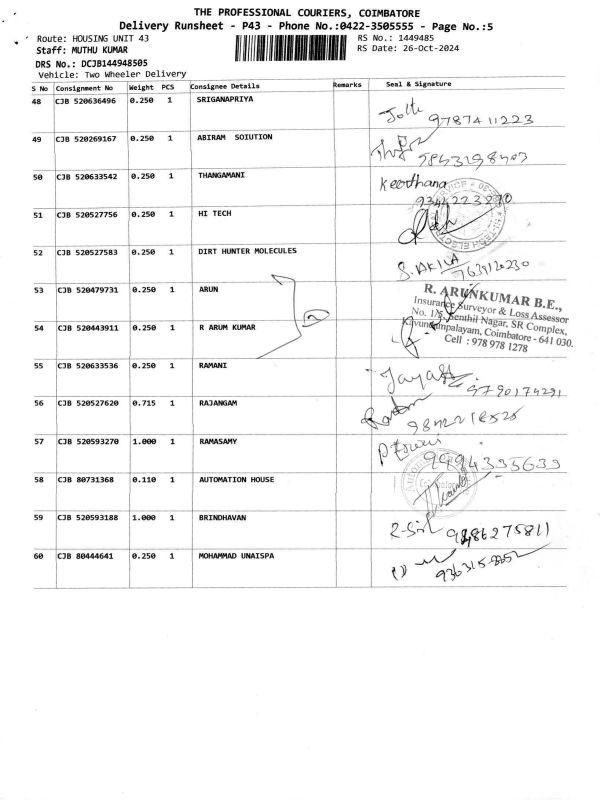 THE PROFESSIONAL COURIERS, COIMBATORE
Delivery Runsheet - P43 - Phone No.:0422-3505555 - Page No.:5
Route: HOUSING UNIT 43
RS No.: 1449485
Staff: MUTHU KUMAR
RS Date: 26-Oct-2024
DRS No.: DCJB144948505
Vehicle: Two Wheeler Delivery
S No Consignment No Weight PCS Consignee Details Remarks Seal & Signature
48 CJB 520636496 0.250 1 SRIGANAPRIYA
9787411223
49 CJB 520269167 0.250 1 ABIRAM SOIUTION
50 CJB 520633542 0.250 1 THANGAMANI
Keerthana
51 CJB 520527756 0.250 1 HI TECH
52 CJB 520527583 0.250 1 DIRT HUNTER MOLECULES
S.AKILA
53 CJB 520479731 0.250 1 ARUN
R. ARUNKUMAR B.E.,
Insurance Surveyor & Loss Assessor
No. 1/5, Senthil Nagar, SR Complex,
Kavundampalayam, Coimbatore - 641 030.
Cell : 978 978 1278
54 CJB 520443911 0.250 1 R ARUM KUMAR
2
55 CJB 520633536 0.250 1 RAMANI
9790174291
56 CJB 520527620 0.715 1 RAJANGAM
57 CJB 520593270 1.000 1 RAMASAMY
9994335633
58 CJB 80731368 0.110 1 AUTOMATION HOUSE
59 CJB 520593188 1.000 1 BRINDHAVAN
60 CJB 80444641 0.250 1 MOHAMMAD UNAISPA